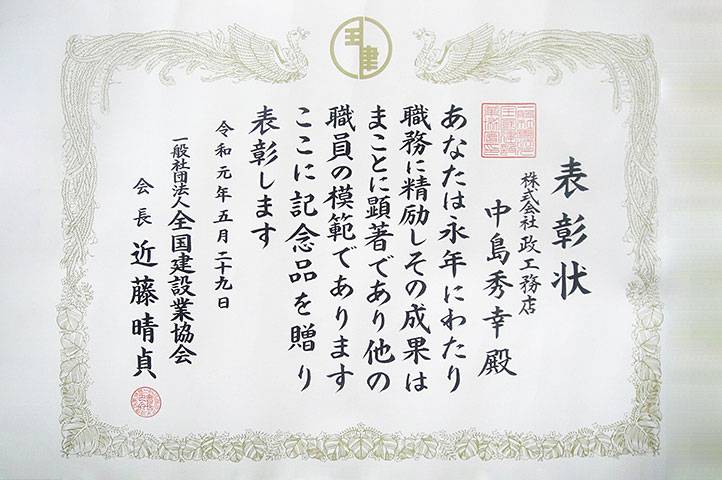 表彰状
株式会社 政工務店
中島秀幸 殿
あなたは永年にわたり
職務に精励しその成果は
まことに顕著であり他の
職員の模範であります
ここに記念品を贈り
表彰します
令和元年五月二十九日
一般社団法人全国建設業協会
会長 近藤晴貞